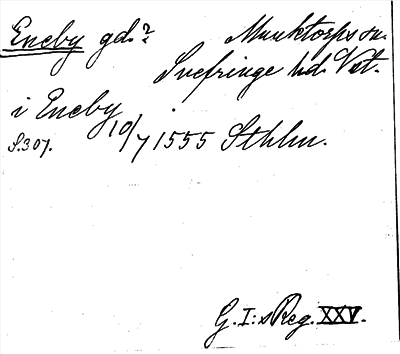 Eneby gd.? Munktorps sn.
Snefringe hd. Vstm.
i Eneby 10/7 1555 Sthlm.
S. 307.
G. I:s Reg. XXV.